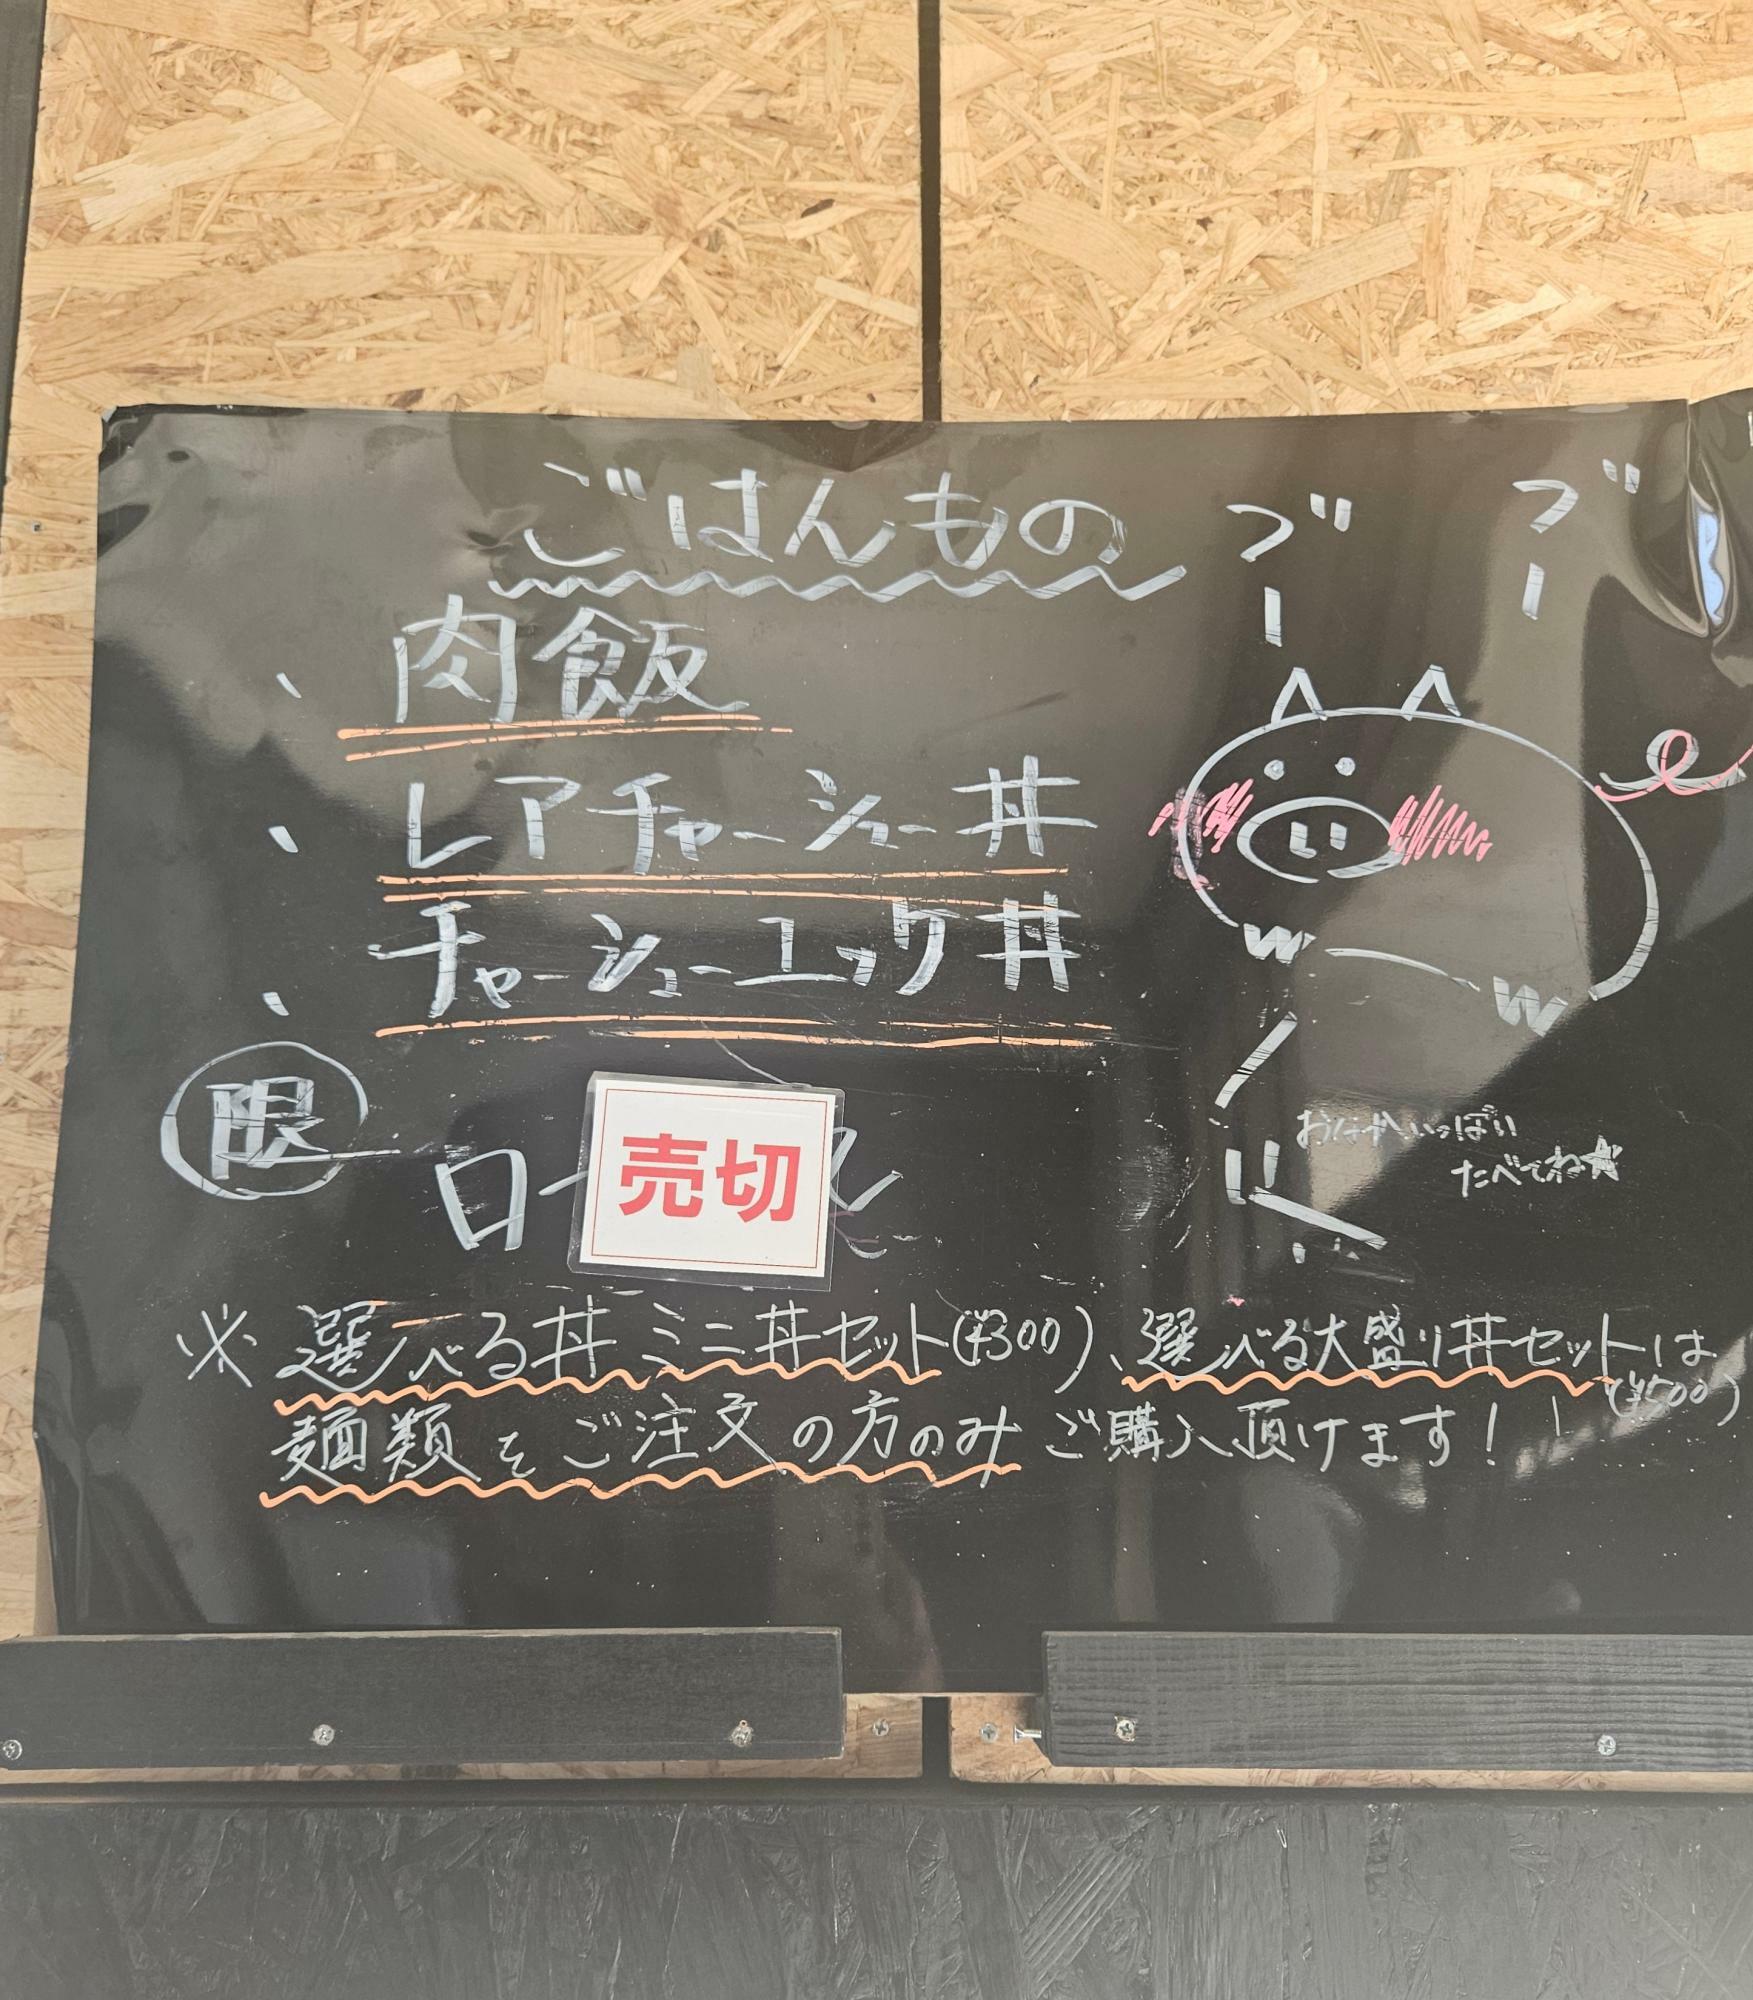 ごはんもの
ブー
ブー
、肉飯
、レアチャーシュー丼
、チャーシューエッグ丼
限
ロー
売切
おなかいっぱい
たべてね☆
※選べる丼ミニ丼セット(¥300)、選べる大盛り丼セットは
(¥500)
麺類をご注文の方のみご購入頂けます!